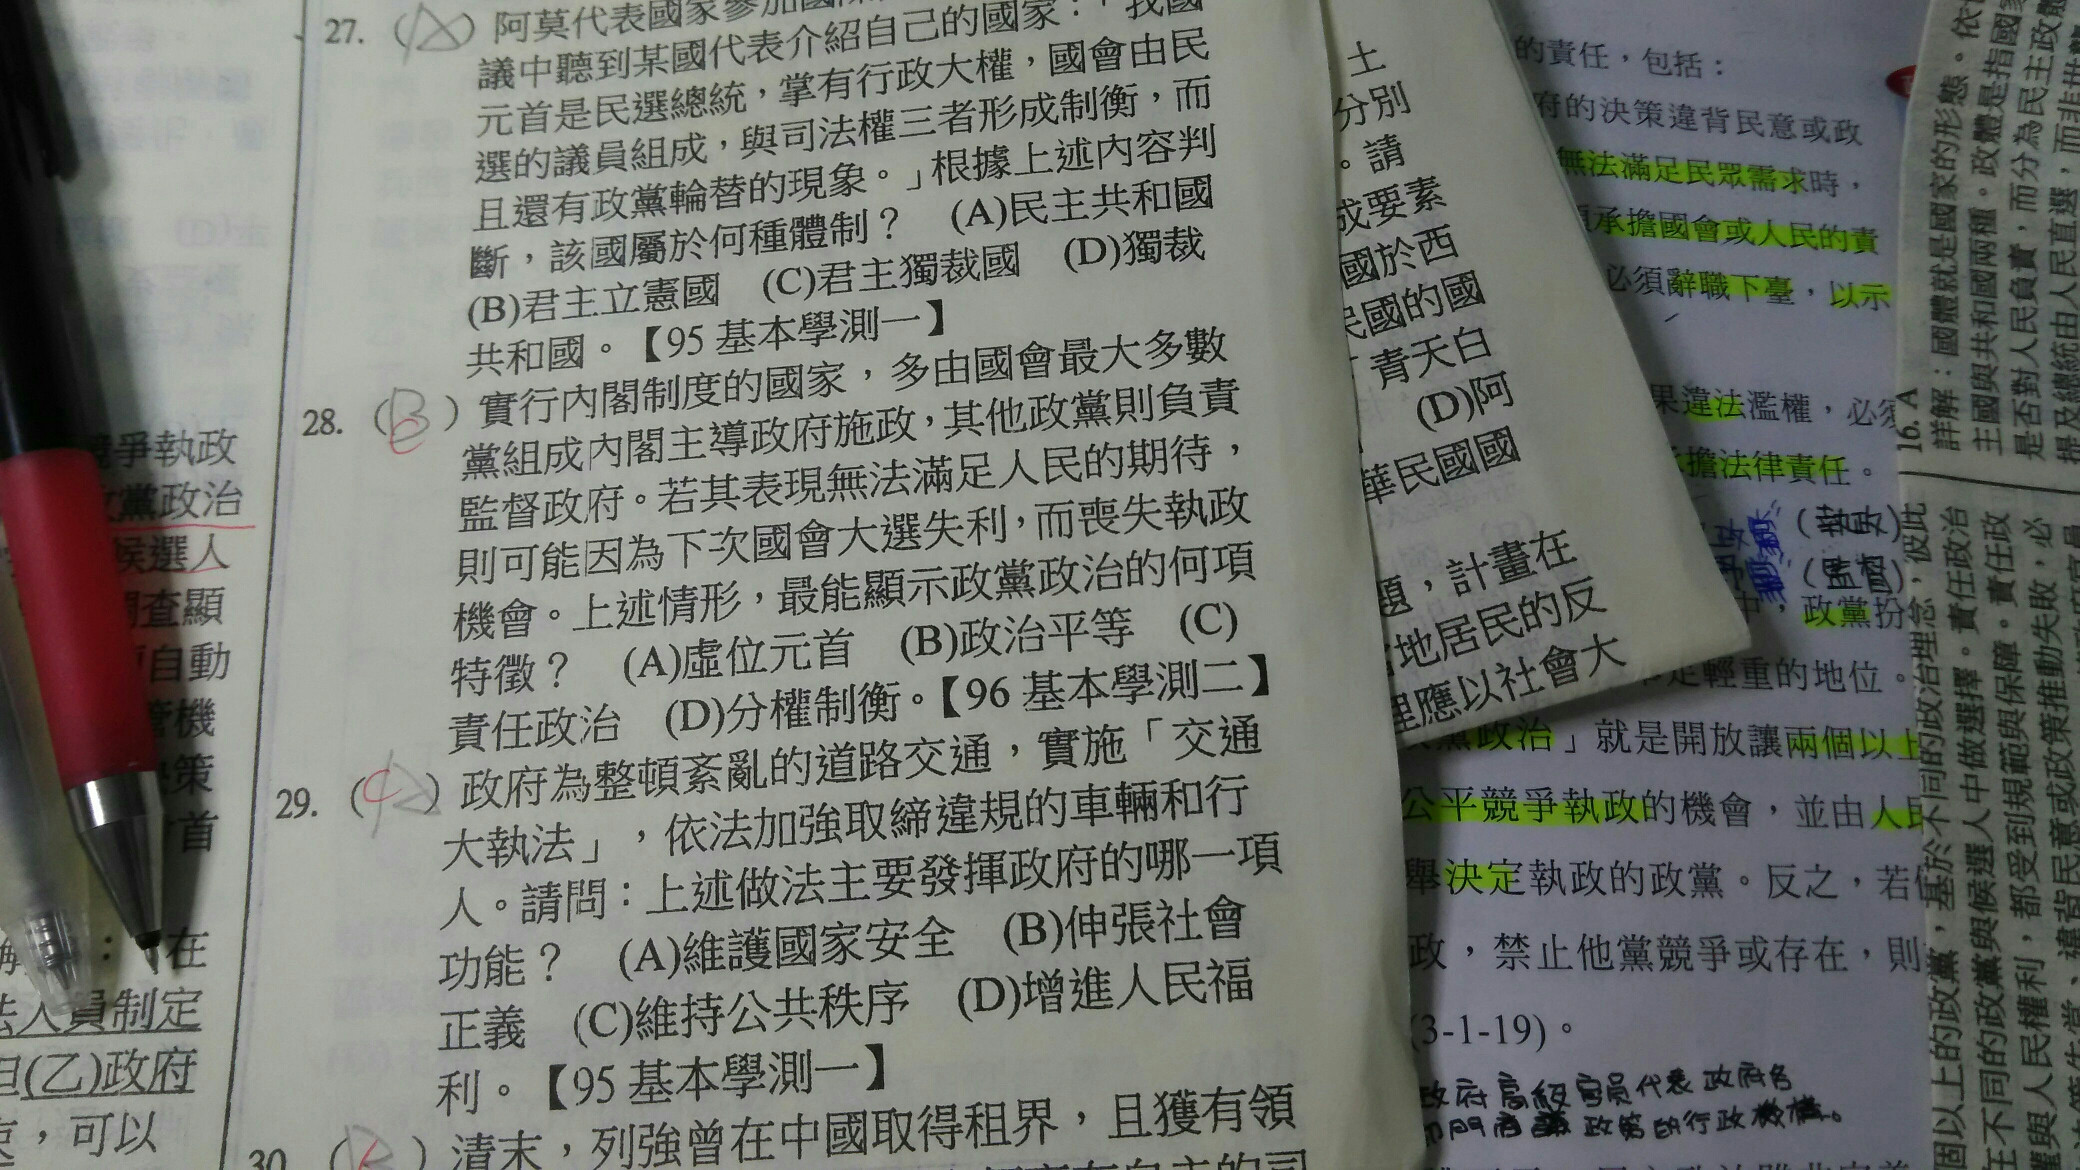 27. ( A ) 阿莫代表國家參加國
議中聽到某國代表介紹自己的國家：「我國
元首是民選總統，掌有行政大權，國會由民
選的議員組成，與司法權三者形成制衡，而
且還有政黨輪替的現象。」根據上述內容判
斷，該國屬於何種體制？ (A)民主共和國
(B)君主立憲國 (C)君主獨裁國 (D)獨裁
共和國。【95 基本學測一】
28. ( B C ) 實行內閣制度的國家，多由國會最大多數
黨組成內閣主導政府施政，其他政黨則負責
監督政府。若其表現無法滿足人民的期待，
則可能因為下次國會大選失利，而喪失執政
機會。上述情形，最能顯示政黨政治的何項
特徵？ (A)虛位元首 (B)政治平等 (C)
責任政治 (D)分權制衡。【96 基本學測二】
29. ( C ) 政府為整頓紊亂的道路交通，實施「交通
大執法」，依法加強取締違規的車輛和行
人。請問：上述做法主要發揮政府的哪一項
功能？ (A)維護國家安全 (B)伸張社會
正義 (C)維持公共秩序 (D)增進人民福
利。【95 基本學測一】
30 清末，列強曾在中國取得租界，且獲有領
爭執政
黨政治
候選人
查顯
自動
機
策
首
在
人員制定
(乙)政府
，可以
土
分別
。請
成要素
國於西
民國的國
青天白
(D)阿
華民國國
題，計畫在
地居民的反
理應以社會大
的責任，包括：
府的決策違背民意或政
無法滿足民眾需求時，
承擔國會或人民的責
必須辭職下臺，以示
果違法濫權，必須
承擔法律責任。
(執政)
(監督)
中，政黨扮
足輕重的地位。
黨政治」就是開放讓兩個以上
公平競爭執政的機會，並由人民
舉決定執政的政黨。反之，若
政，禁止他黨競爭或存在，則
(3-1-19)。
政府高級官員代表政府各
部門商議政策的行政機構。
16. A
詳解：國體就是國家的形態。依
主國與共和國兩種。政體是指國家
是否對人民負責，而分為民主政體
提及總統由人民直選，而非世
固以上的政黨，基於不同的政治理念，彼此
在不同的政黨與候選人中做選擇。責任政治
權與人民權利，都受到規範與保障。責任政
違背民意或政策推動失敗，必